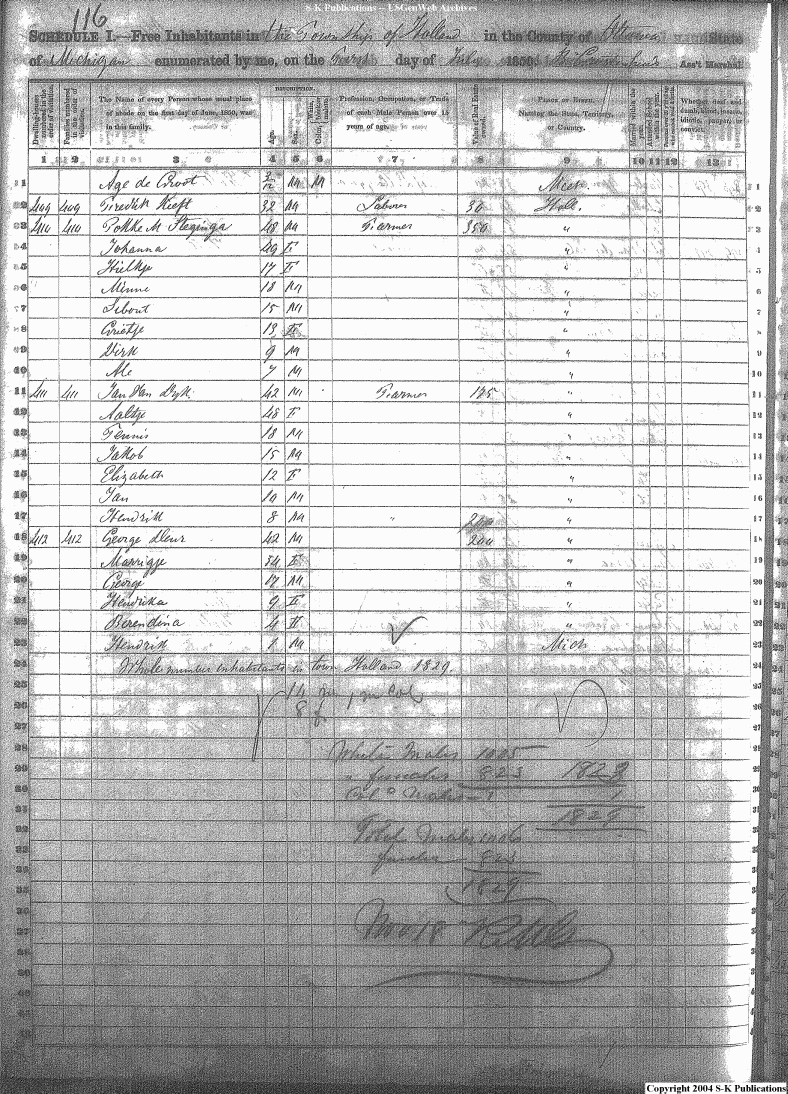 S-K Publications -- USGenWeb Archives
116
SCHEDULE I.—Free Inhabitants in the Township of Holland in the County of Ottawa State
of Michigan enumerated by me, on the First day of July 1850. Ass't Marshal.
DESCRIPTION.
Dwelling-houses numbered in the order of visitation.
Families numbered in the order of visitation.
The Name of every Person whose usual place of abode on the first day of June, 1850, was in this family.
Age.
Sex.
Color, White, black, or mulatto.
Profession, Occupation, or Trade of each Male Person over 15 years of age.
Value of Real Estate owned.
PLACE OF BIRTH. Naming the State, Territory, or Country.
Married within the year.
Whether deaf and dumb, blind, insane, idiotic, pauper, or convict.
1 2 3 4 5 6 7 8 9 10 11 12 13
1 Age de Groot 3/12 M Mich 1
2 409 409 32 M Laborer 30 Holl. 2
3 410 410 Fokke M Steginga 48 M Farmer 350 " 3
4 Johanna 49 F " 4
5 Hielkje 17 F " 5
6 Minne 18 M " 6
7 Sebout 15 M " 7
8 Grietje 13 F " 8
9 Dirk 9 M " 9
10 Ale 7 M " 10
11 411 411 Jan Van Dyk 42 M Farmer 175 " 11
12 Aaltje 48 F " 12
13 Tennis 18 M " 13
14 Jakob 15 M " 14
15 Elizabeth 12 F " 15
16 Jan 10 M " 16
17 Hendrik 8 M " " 17
18 412 412 George Deur 42 M 200 " 18
19 Marrigje 34 F " 19
20 George 12 M " 20
21 Hendrika 9 F " 21
22 Berendina 4 F " 22
23 Hendrik 1 M Mich 23
24 Whole number inhabitants in town Holland 1829. 24
14 m 1 m Col
8 f.
White Males 1005
" females 823 1828
Col d Males 1 1
1829
Total Males 1006
females 823
1829
Nov 18
Copyright 2004 S-K Publications